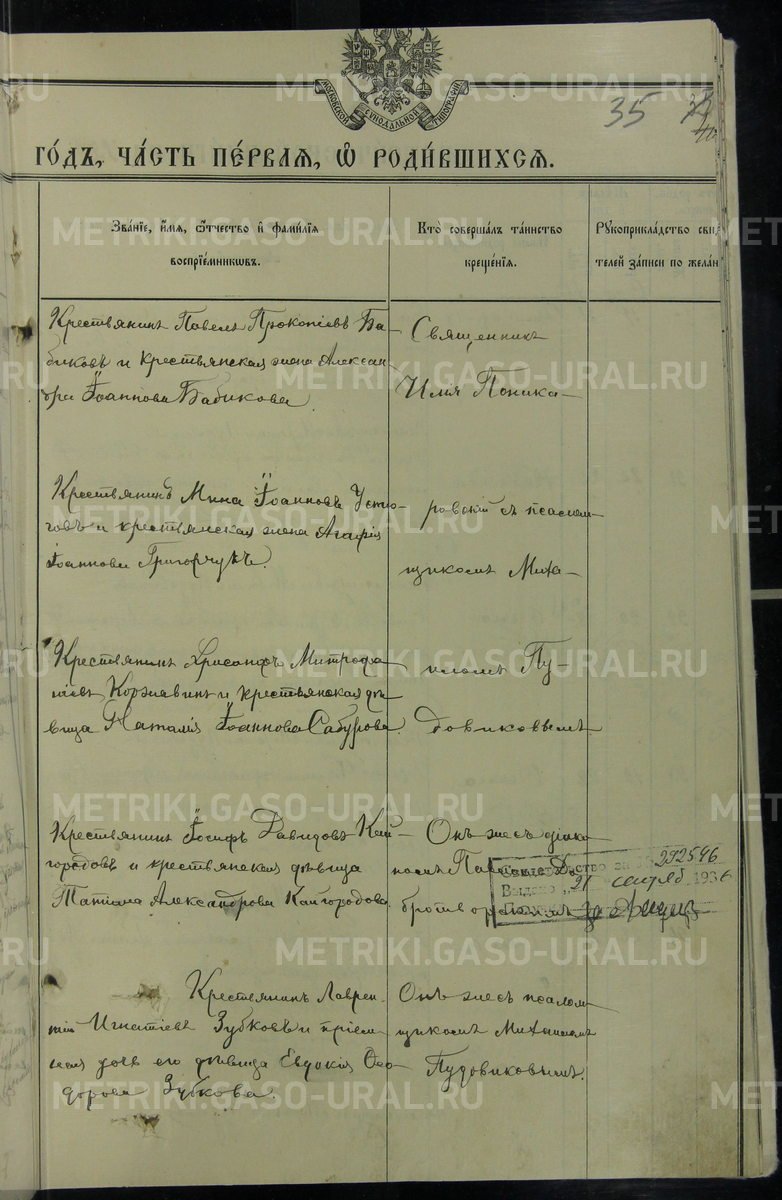 МОСКОВСКОЙ СУНОДАЛЬНОЙ ТИПОГРАФІИ
35
ГО́ДЪ, ЧА́СТЬ ПЕ́РВАѦ, Ѡ҆ РОДИ́ВШИХСѦ.
Зва́нїе, и҆́мѧ, ѻ҆́тчество и҆ фами́лїѧ
воспрїе́мникѡвъ.
Кто̀ соверша́лъ та́инство
креще́нїѧ.
Рꙋкоприкла́дство свидѣ
телей за́писи по жела́н
Крестьянинъ Павелъ Прокопіевъ Ба-
биковъ и крестьянская жена Алексан
дра Іоаннова Бабикова.
Священникъ
Илія Поника-
Крестьянинъ Мина Іоанновъ Устю-
говъ и крестьянская жена Агафія
Іоаннова Григорчукъ.
ровскій съ псалом
щикомъ Миха-
Крестьянинъ Хрисанфъ Митрофа
ніевъ Коржавинъ и крестьянская дѣ
вица Наталія Іоаннова Сабурова.
иломъ Пу-
довиковымъ
Крестьянинъ Іосифъ Давидовъ Кай-
городовъ и крестьянская дѣвица
Татіана Александрова Кайгородова
Онъ же съ діако
номъ
бротворскимъ
292546
Выдано 21 сентяб 1936
Крестьянинъ Лаврен-
тій Игнатіевъ Зубковъ и пріем-
ная дочь его дѣвица Евдокія Ѳео
дорова Зубкова.
Онъ же съ псалом
щикомъ Михаиломъ
Пудовиковымъ.
METRIKI.GASO-URAL.RU